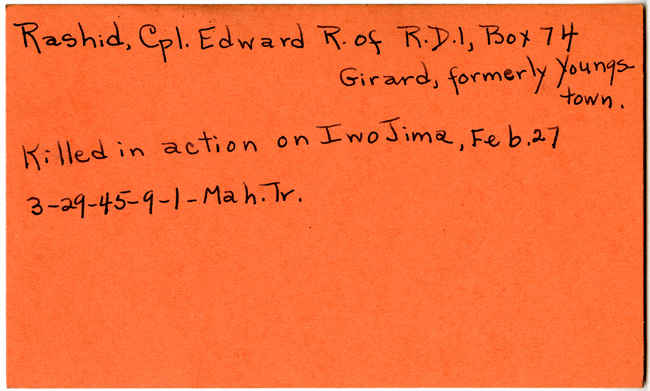 Rashid, Cpl. Edward R. of R.D.1, Box 74
Girard, formerly Youngs-
town.
Killed in action on Iwo Jima, Feb. 27
3-29-45-9-1-Mah.Tr.